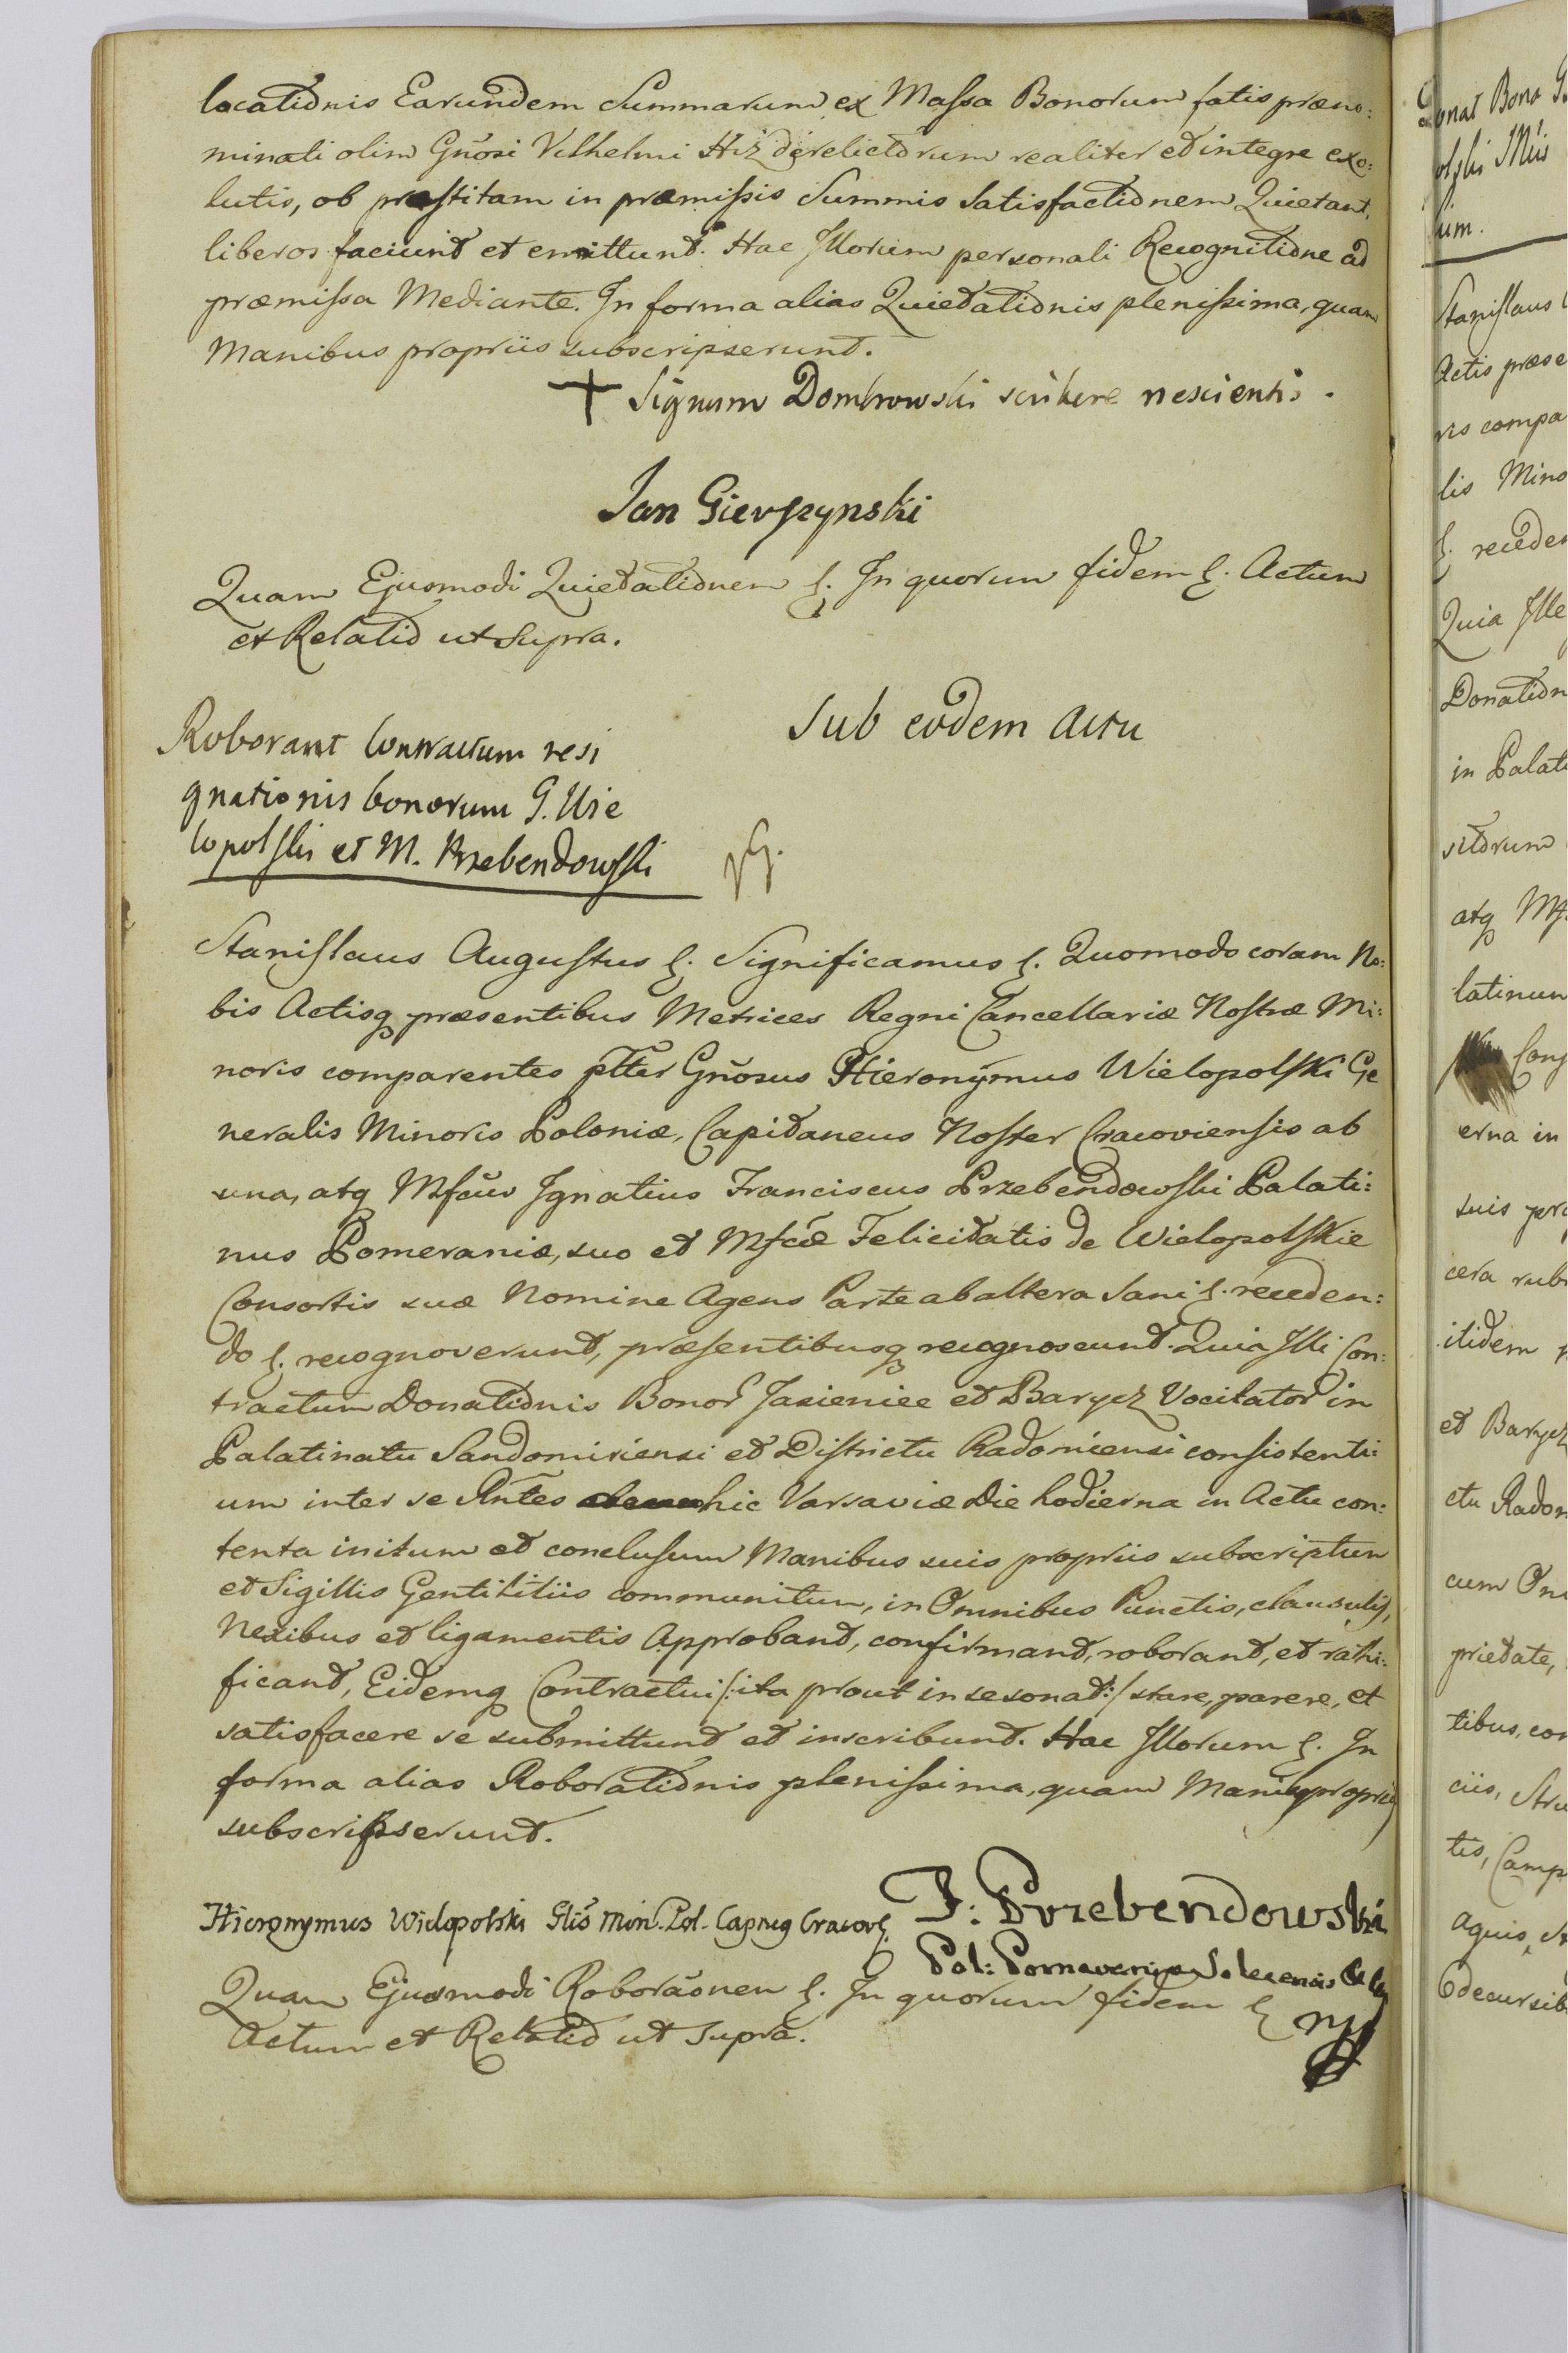 locationis Earundem Summarum ex Massa Bonorum fatis præno:
minati olim Gnosi Vilhelmi Hiz derelictorum realiter et integre exo:
lutis, ob præstitam in præmissis Summis Satisfactionem Quietant,
liberos faciunt et emittunt. Hac Illorum personali Recognitione ad
præmissa Mediante. In forma alias Quietationis plenissima, quam
Manibus propriis subscripserunt.
+ Signum Dombrowski scribere nescientis.
Jan Gierszynski
Quam Ejusmodi Quietationem &. In quorum fidem &. Actum
et Relatio ut supra.
Sub eodem Actu
Roborant Contractum resi
gnationis bonorum G. Wie
lopolski et M. Przebendowski
Stanislaus Augustus &. Significamus &. Quomodo coram No:
bis Actisq præsentibus Metrices Regni Cancellariæ Nostræ Mi:
noris comparentes pltter Gnosus Hieronymus Wielopolski Ge
neralis Minoris Poloniæ, Capitaneus Noster Cracoviensis ab
una, atq Mfcus Ignatius Franciscus Przebendowski Palati:
nus Pomeraniæ, suo et Mfcæ Felicitatis de Wielopolskie
Consortis suæ Nomine Agens Parte ab altera Sani &. receden:
do &. recognoverunt, præsentibusq recognoscunt. Quia Illi Con:
tractum Donationis Bonor Jasieniec et Barycz Vocitator in
Palatinatu Sandomiriensi et Districtu Radomiensi consistenti:
um inter se Rntes hic Varsaviæ Die hodierna in Actu con:
tenta initum et conclusum Manibus suis propriis subscriptum
et Sigillis Gentilitiis communitum, in Omnibus Punctis, clausulis,
Nexibus et ligamentis Approbant, confirmant, roborant, et rathi:
ficant, Eidemq Contractui /: ita prout in se sonat :/ stare, parere, et
satisfacere se submittunt et inscribunt. Hac Illorum &. In
forma alias Roborationis plenissima, quam Manibq propriis
subscripserunt.
Hieronymus Wielopolski Glis Min. Pol. Capneg Cracov&.
J: Przebendowski
Pal: Pomeraniæ Solecensis
Quam Ejusmodi Roboraonem &. In quorum fidem &
Actum et Relatio ut supra.
onat Bona
Stanislaus
Actis præse
ris compa
lis Mino
&. receden
Quia Ille
Donation
in Palati
sitorum
atq Mf
latinum
erna in
suis pro
cera rub
itidem
et Barycz
ctu Radom
cum
prietate,
tibus, con
ciis, Stru
tis, Camp
Aquis, St
decursib